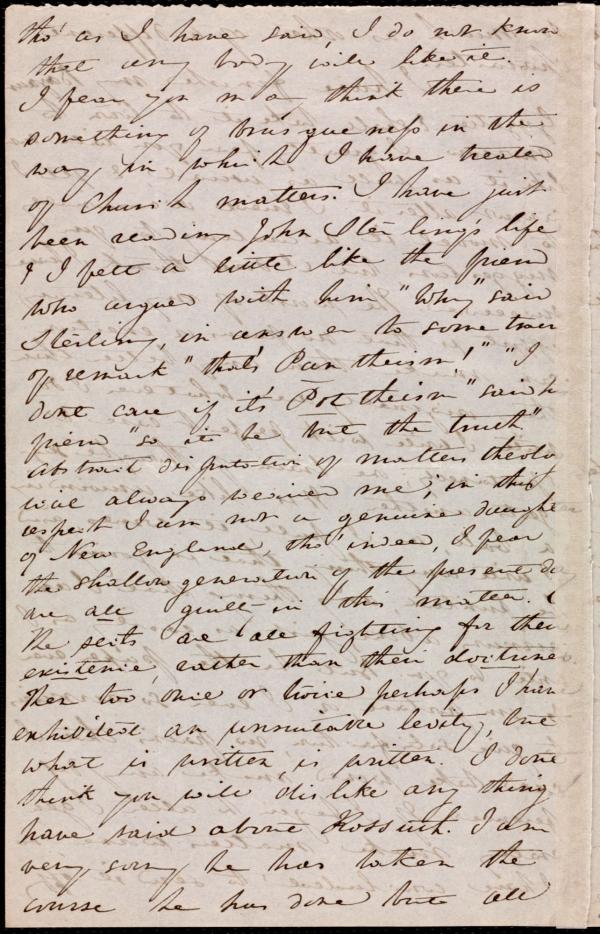 tho' as I have said, I do not know
that any body will like it.
I fear you may think there is
something of brusqueness in the
way in which I have treated
of Church matters. I have just
been reading John Sterling's life
& I felt a little like the friend
who argued with him "Why" said
Sterling, in answer to some
of remark "that's Pantheism!" "I
dont care if it's Pot theism" said
friend "so it be but the truth"
Abstract disputation of matters theolo
ical always wearied me; in this
respect I am not a genuine daughte
of New England, tho' indeed, I fear
the shallow generation of the present day
are all guilty in this matter.
The sects are all fighting for their
existence, rather than their doctrine
Then too once or twice perhaps I have
exhibited an unsuitable levity, but
what is written, is written. I dont
think you will dislike any thing
have said about Kossuth. I am
very sorry he has taken the
course he has done but all